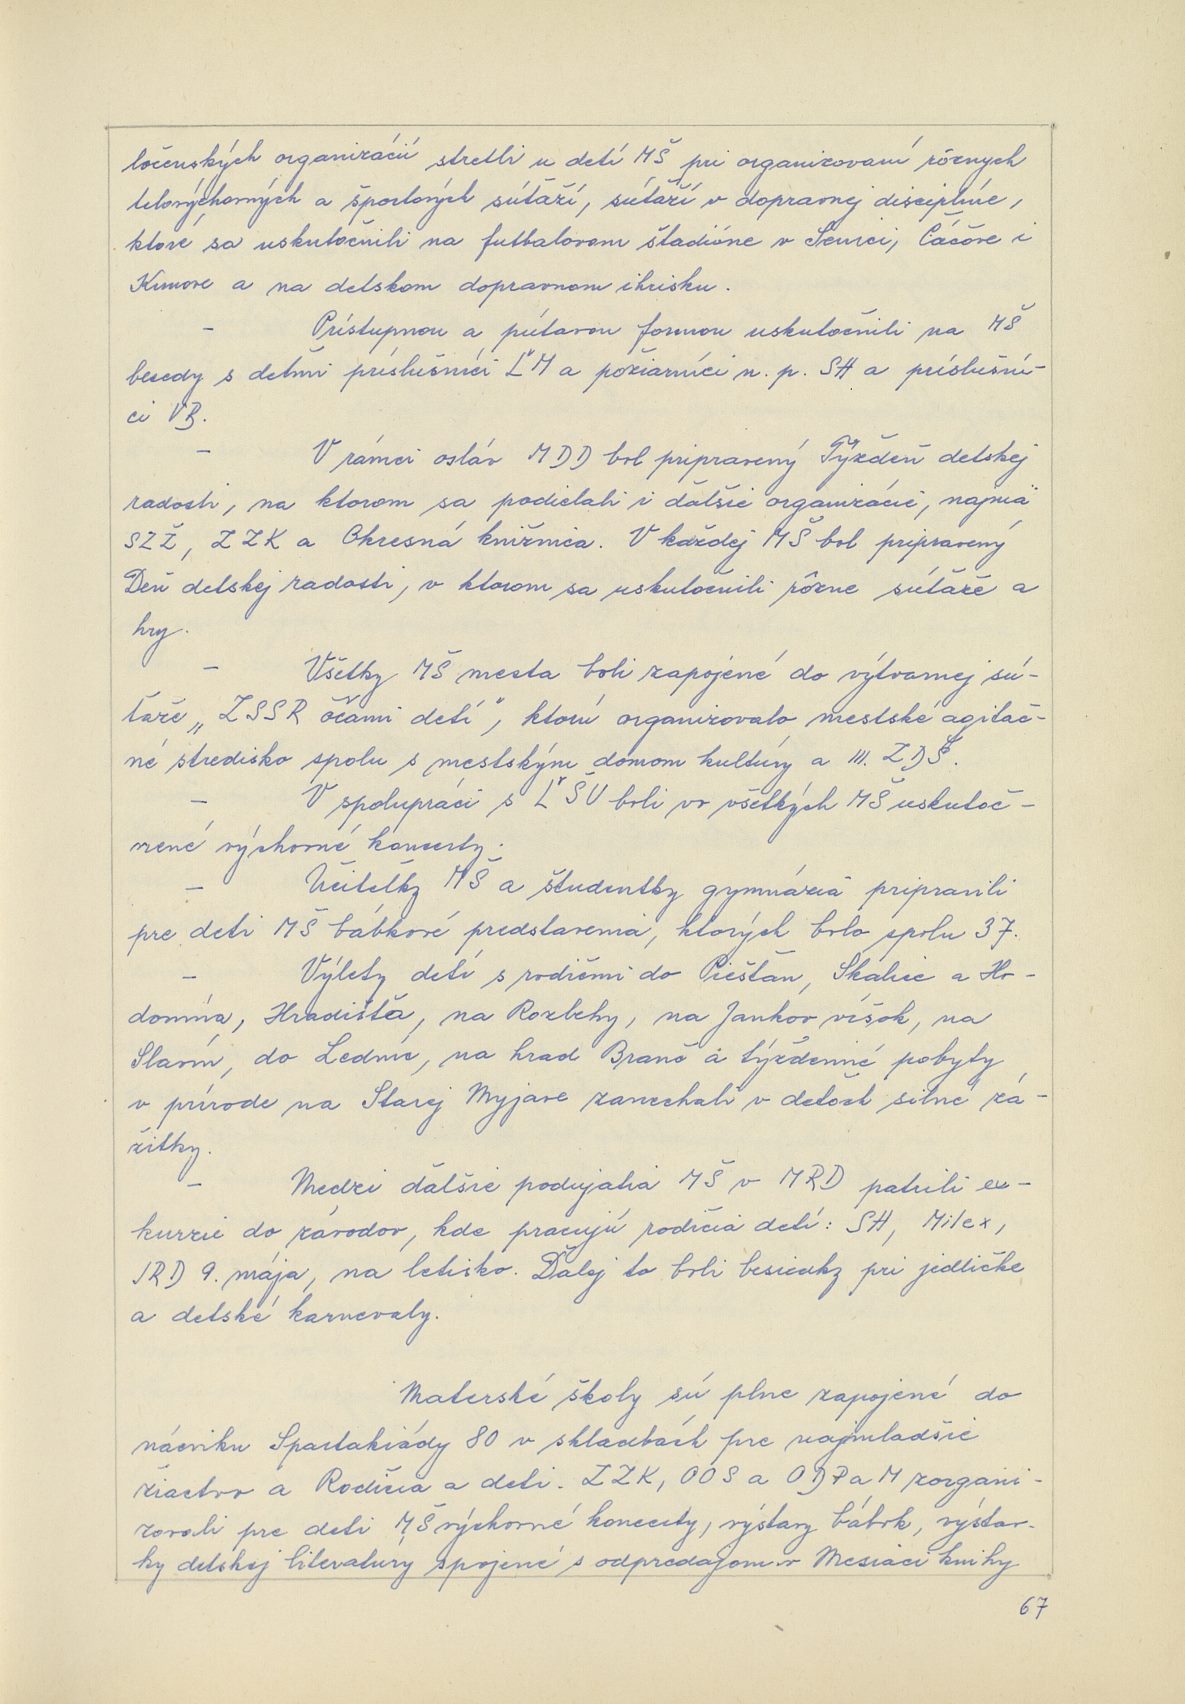 ločenských organizácií stretli u detí MŠ pri organizovaní rôznych
telovýchovných a športových súťaží, súťaží v dopravnej disciplíne,
ktoré sa uskutočnili na futbalovom štadióne v Senici, Čáčove i
Kunove a na detskom dopravnom ihrisku.
- Prístupnou a pútavou formou uskutočnili na MŠ
besedy s deťmi príslušníci ĽM a požiarnici n. p. SH a príslušní-
ci VB.
- V rámci osláv MDD bol pripravený Týždeň detskej
radosti, na ktorom sa podielali i ďalšie organizácie, najmä
SZŽ, ZZK a Okresná knižnica. V každej MŠ bol pripravený
Deň detskej radosti, v ktorom sa uskutočnili rôzne súťaže a
hry.
- Všetky MŠ mesta boli zapojené do výtvarnej sú-
ťaže „ZSSR očami detí", ktorú organizovalo mestské agitač-
né stredisko spolu s mestským domom kultúry a III. ZDŠ.
- V spolupráci s ĽŠU boli vo všetkých MŠ uskutoč-
nené výchovné koncerty.
- Učiteľky MŠ a študentky gymnázia pripravili
pre deti MŠ bábkové predstavenia, ktorých bolo spolu 37.
- Výlety detí s rodičmi do Piešťan, Skalice a Ho-
donína, Hradišťa, na Rozbehy, na Jankov víšok, na
Slavín, do Ledníc, na hrad Branč a týždenné pobyty
v prírode na Starej Myjave zanechali v deťoch silné zá-
žitky.
- Medzi ďalšie podujatia MŠ v MRD patrili ex-
kurzie do závodov, kde pracujú rodičia detí: SH, Milex,
JRD 9. mája, na letisko. Ďalej to boli besiedky pri jedličke
a detské karnevaly.
Materské školy sú plne zapojené do
nácviku Spartakiády 80 v skladbách pre najmladšie
žiactvo a Rodičia a deti. ZZK, OOS a ODPaM zorgani-
zovali pre deti MŠ výchovné koncerty, výstavy bábok, výstav-
ky detskej literatúry spojené s odpredajom v Mesiaci knihy
67